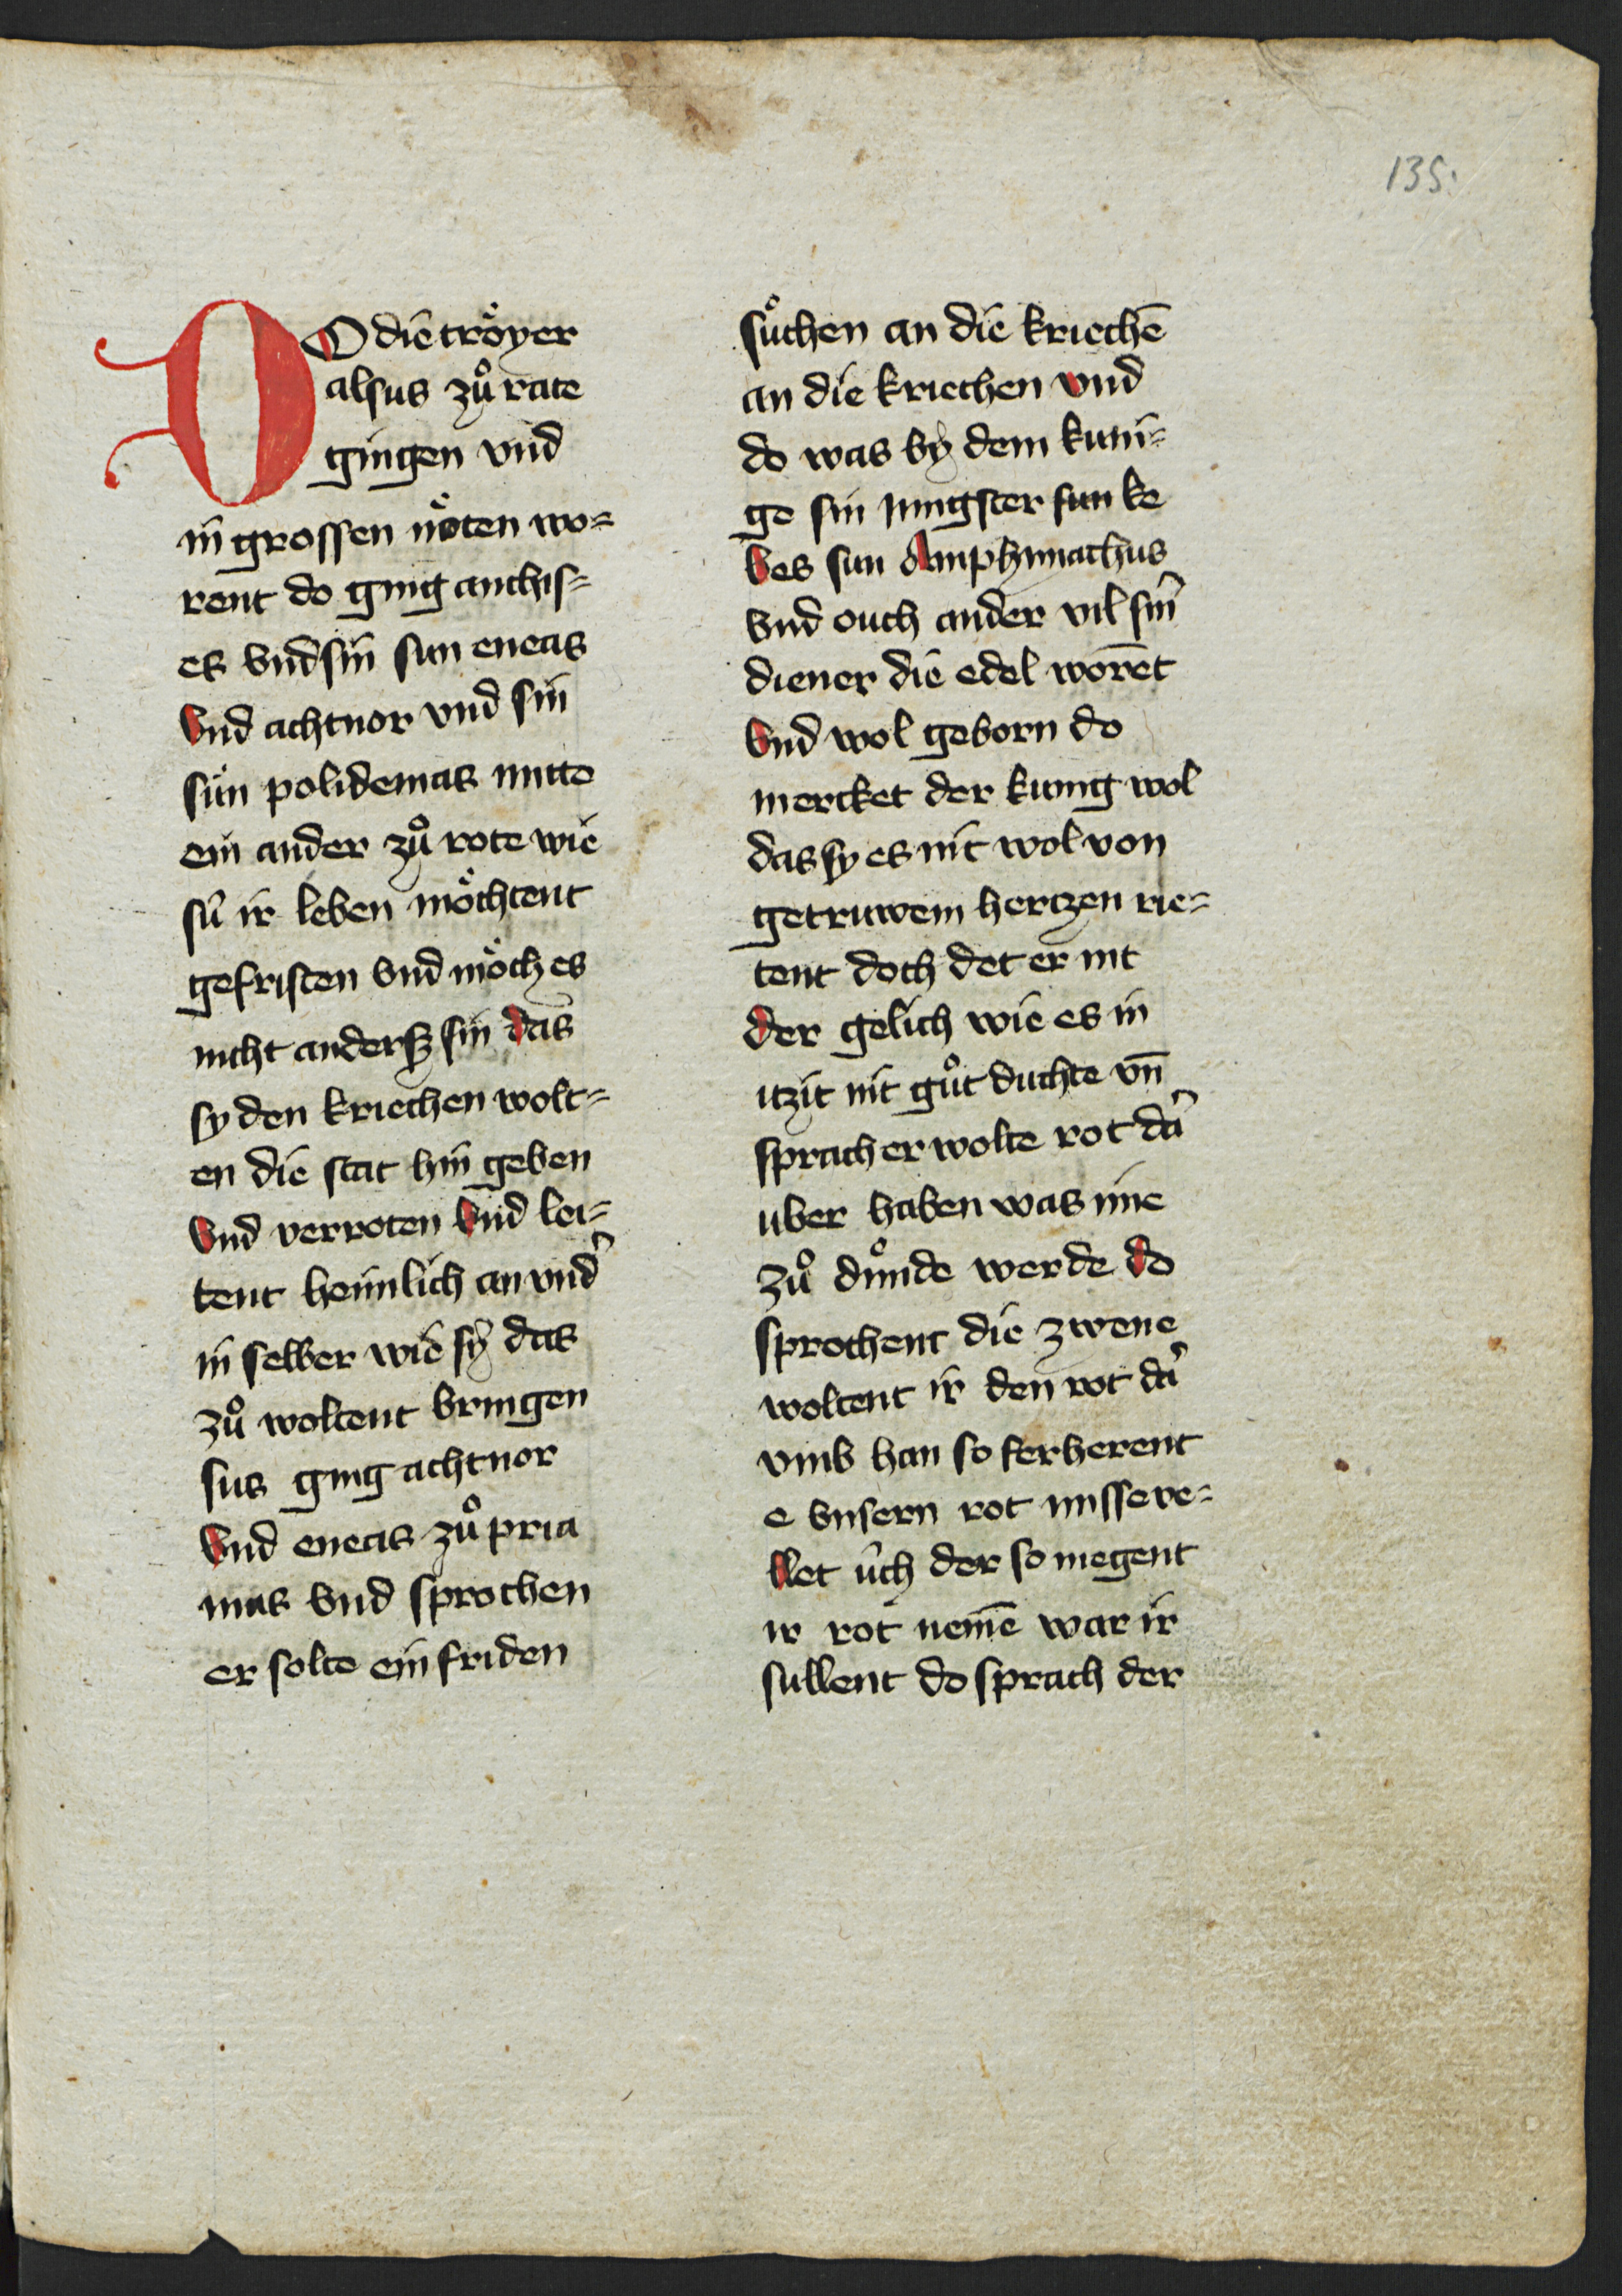 135.
DO die tröyer
alsus zů rate
gingen vnd
in grossen nöten wo=
rent do ging anchis=
es vnd sin sun eneas
Vnd achtnor vnd sin
sün polidemas mitte
ein ander zů rote wie
sú ir leben möchtent
gefristen vnd möch es
nicht andersz sin das
sy den kriechen wolt=
en die stat hin geben
Vnd verroten vnd lei=
tent heimlich an vnd̉
in selber wie sy das
zů woltent bringen
sus ging achtnor
Vnd eneas zů pria
mas vnd sprochen
er solte ein friden
sůchen an die kriechē
an die kriechen vnd
do was by dem kuni=
ge sin jungster sun ke
bes sun Amphimachus
vnd ouch ander vil sin̉
diener die edel worēt
Vnd wol geborn do
mercket der kunig wol
das sy es nit wol von
getruwem hertzen rie=
tent doch det er nit
der gelich wie es in
itzit nit gůt duchte vn̄
sprach er wolte rot da̓
uber haben was ime
zů důnde werde do
sprochent die zwene
woltent ir den rot da̓
vmb han so ferherent
e vnsern rot misseve=
llet úch der so megent
ir rot nemē war ir
sullent do sprach der